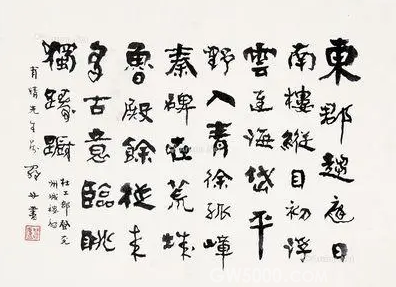 東郡趨庭日
南樓縱目初浮
雲連海岱平
野入青徐孤嶂
秦碑在荒城
魯殿餘從來
多古意臨眺
獨躊躕
杜工部登兗
州城樓詩
先生 羅丹書